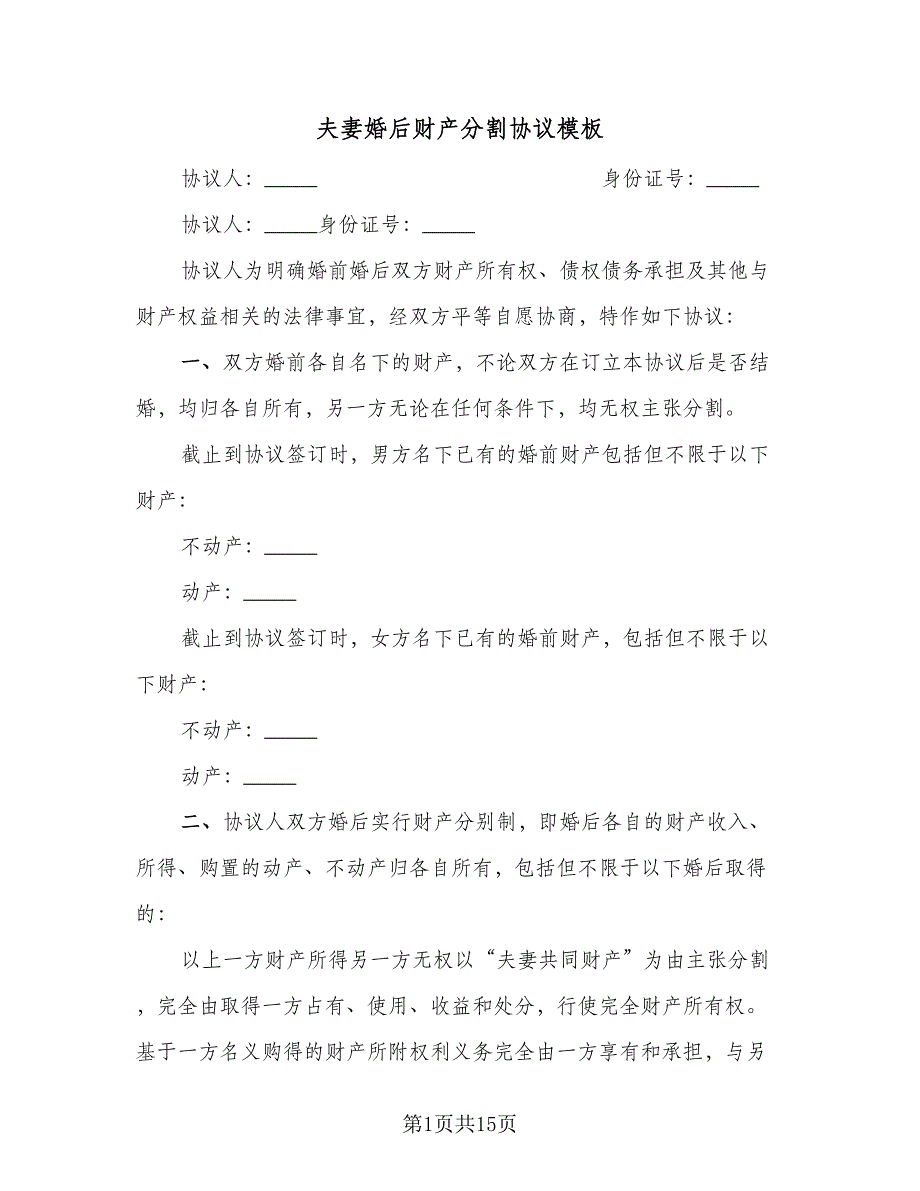 夫妻婚后财产分割协议模板
协议人：_____ 身份证号：_____
协议人：_____身份证号：_____
协议人为明确婚前婚后双方财产所有权、债权债务承担及其他与
财产权益相关的法律事宜，经双方平等自愿协商，特作如下协议：
一、双方婚前各自名下的财产，不论双方在订立本协议后是否结
婚，均归各自所有，另一方无论在任何条件下，均无权主张分割。
截止到协议签订时，男方名下已有的婚前财产包括但不限于以下
财产：
不动产：_____
动产：_____
截止到协议签订时，女方名下已有的婚前财产，包括但不限于以
下财产：
不动产：_____
动产：_____
二、协议人双方婚后实行财产分别制，即婚后各自的财产收入、
所得、购置的动产、不动产归各自所有，包括但不限于以下婚后取得
的：
以上一方财产所得另一方无权以“夫妻共同财产”为由主张分割
，完全由取得一方占有、使用、收益和处分，行使完全财产所有权。
基于一方名义购得的财产所附权利义务完全由一方享有和承担，与另
第1页共15页